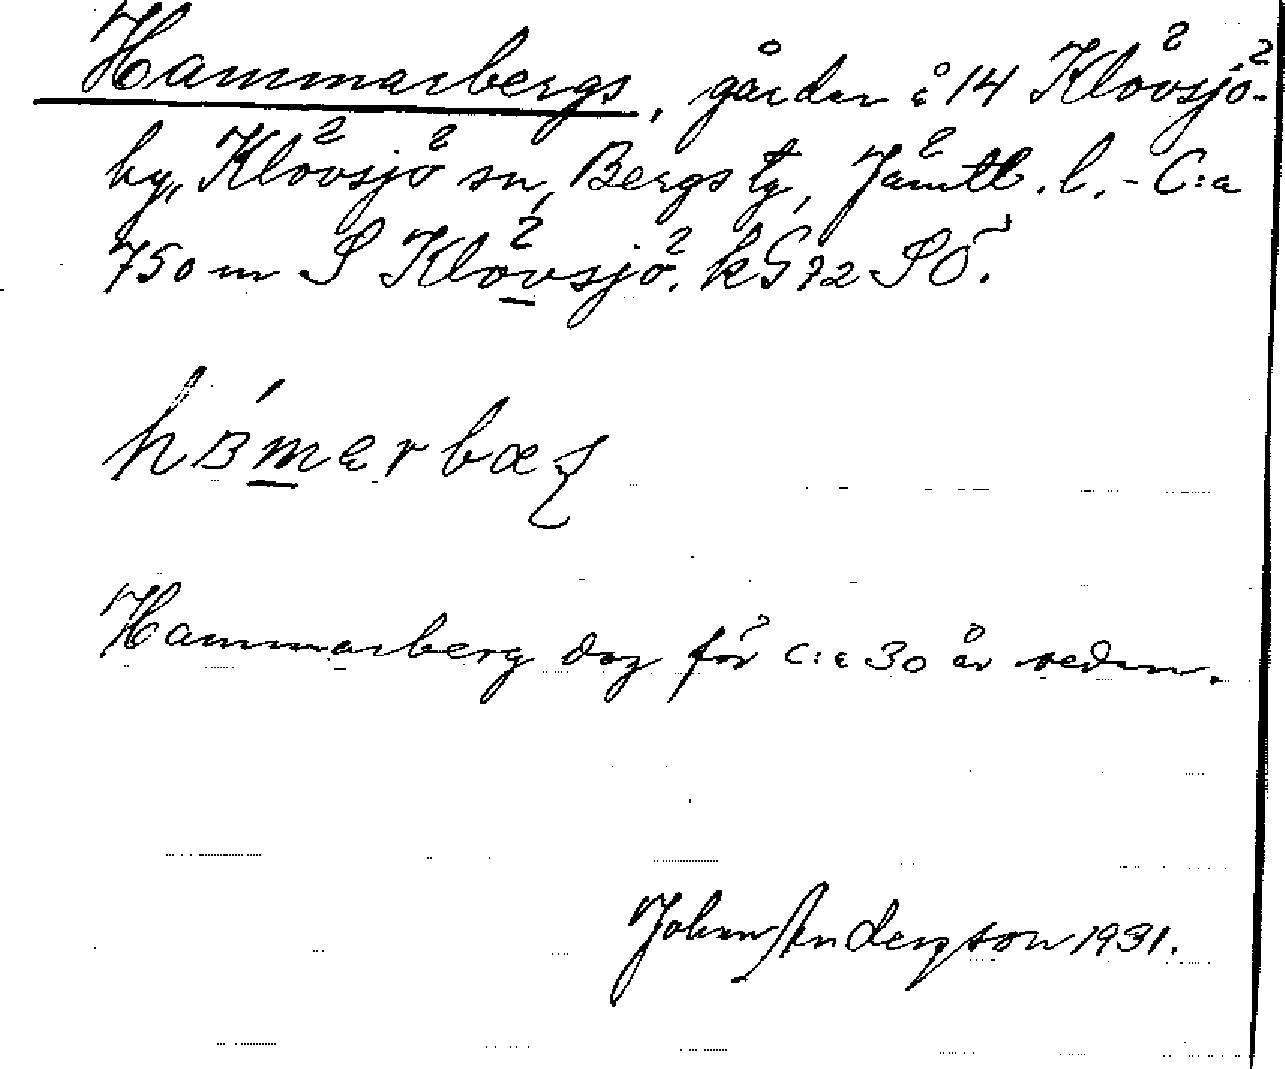 Hammarbergs, gårdar å 14 Klövsjö
by, Klövsjö sn, Bergs tg, Jämtl. l. - C:a
750 m S Klövsjö. kG72 SÖ.
Hammarberg dog för c:a 30 år sedan.
Johan Andersson 1931.